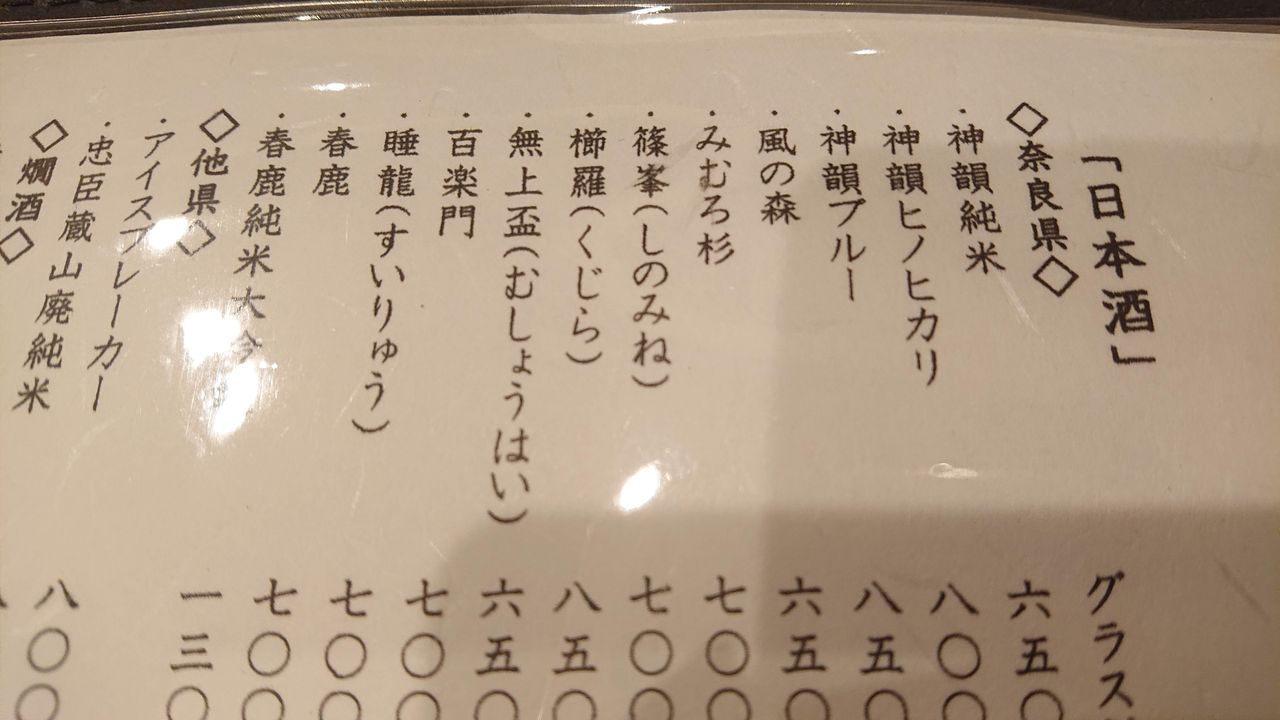 「日本酒」 グラス
◇奈良県◇
・神韻純米 六五〇
・神韻ヒノヒカリ 八〇〇
・神韻ブルー 八五〇
・風の森 六五〇
・みむろ杉 七〇〇
・篠峯(しのみね) 七〇〇
・櫛羅(くじら) 八五〇
・無上盃(むしょうはい) 六五〇
・百楽門 七〇〇
・睡龍(すいりゅう) 七〇〇
・春鹿 七〇〇
・春鹿純米大 一三〇
◇他県◇
・アイスブレーカー 八〇〇
・忠臣蔵山廃純米
◇燗酒◇